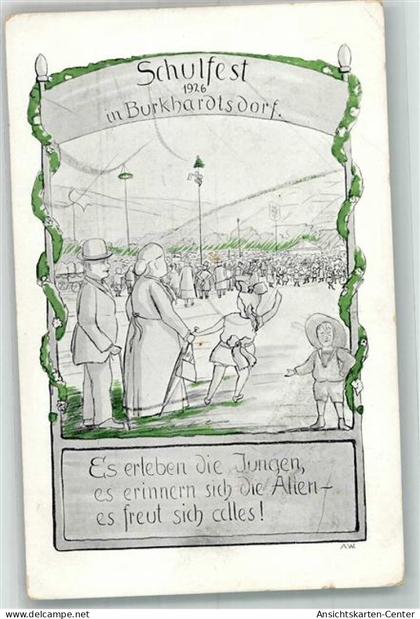 Schulfest
1926
in Burkhardtsdorf.
Es erleben die Jungen,
es erinnern sich die Alten –
es freut sich alles!
A.W.
www.ansichtskarten-center.de
Ansichtskarten-Center